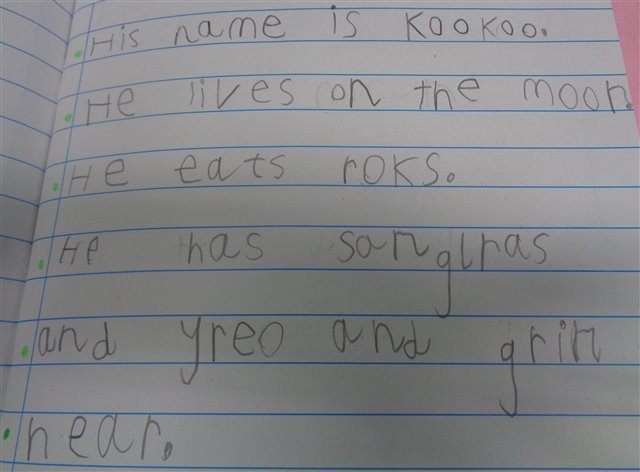 His name is KOOKOO.
He lives on the moon.
He eats roks.
He has sanglras
and yreo and grin
hear.